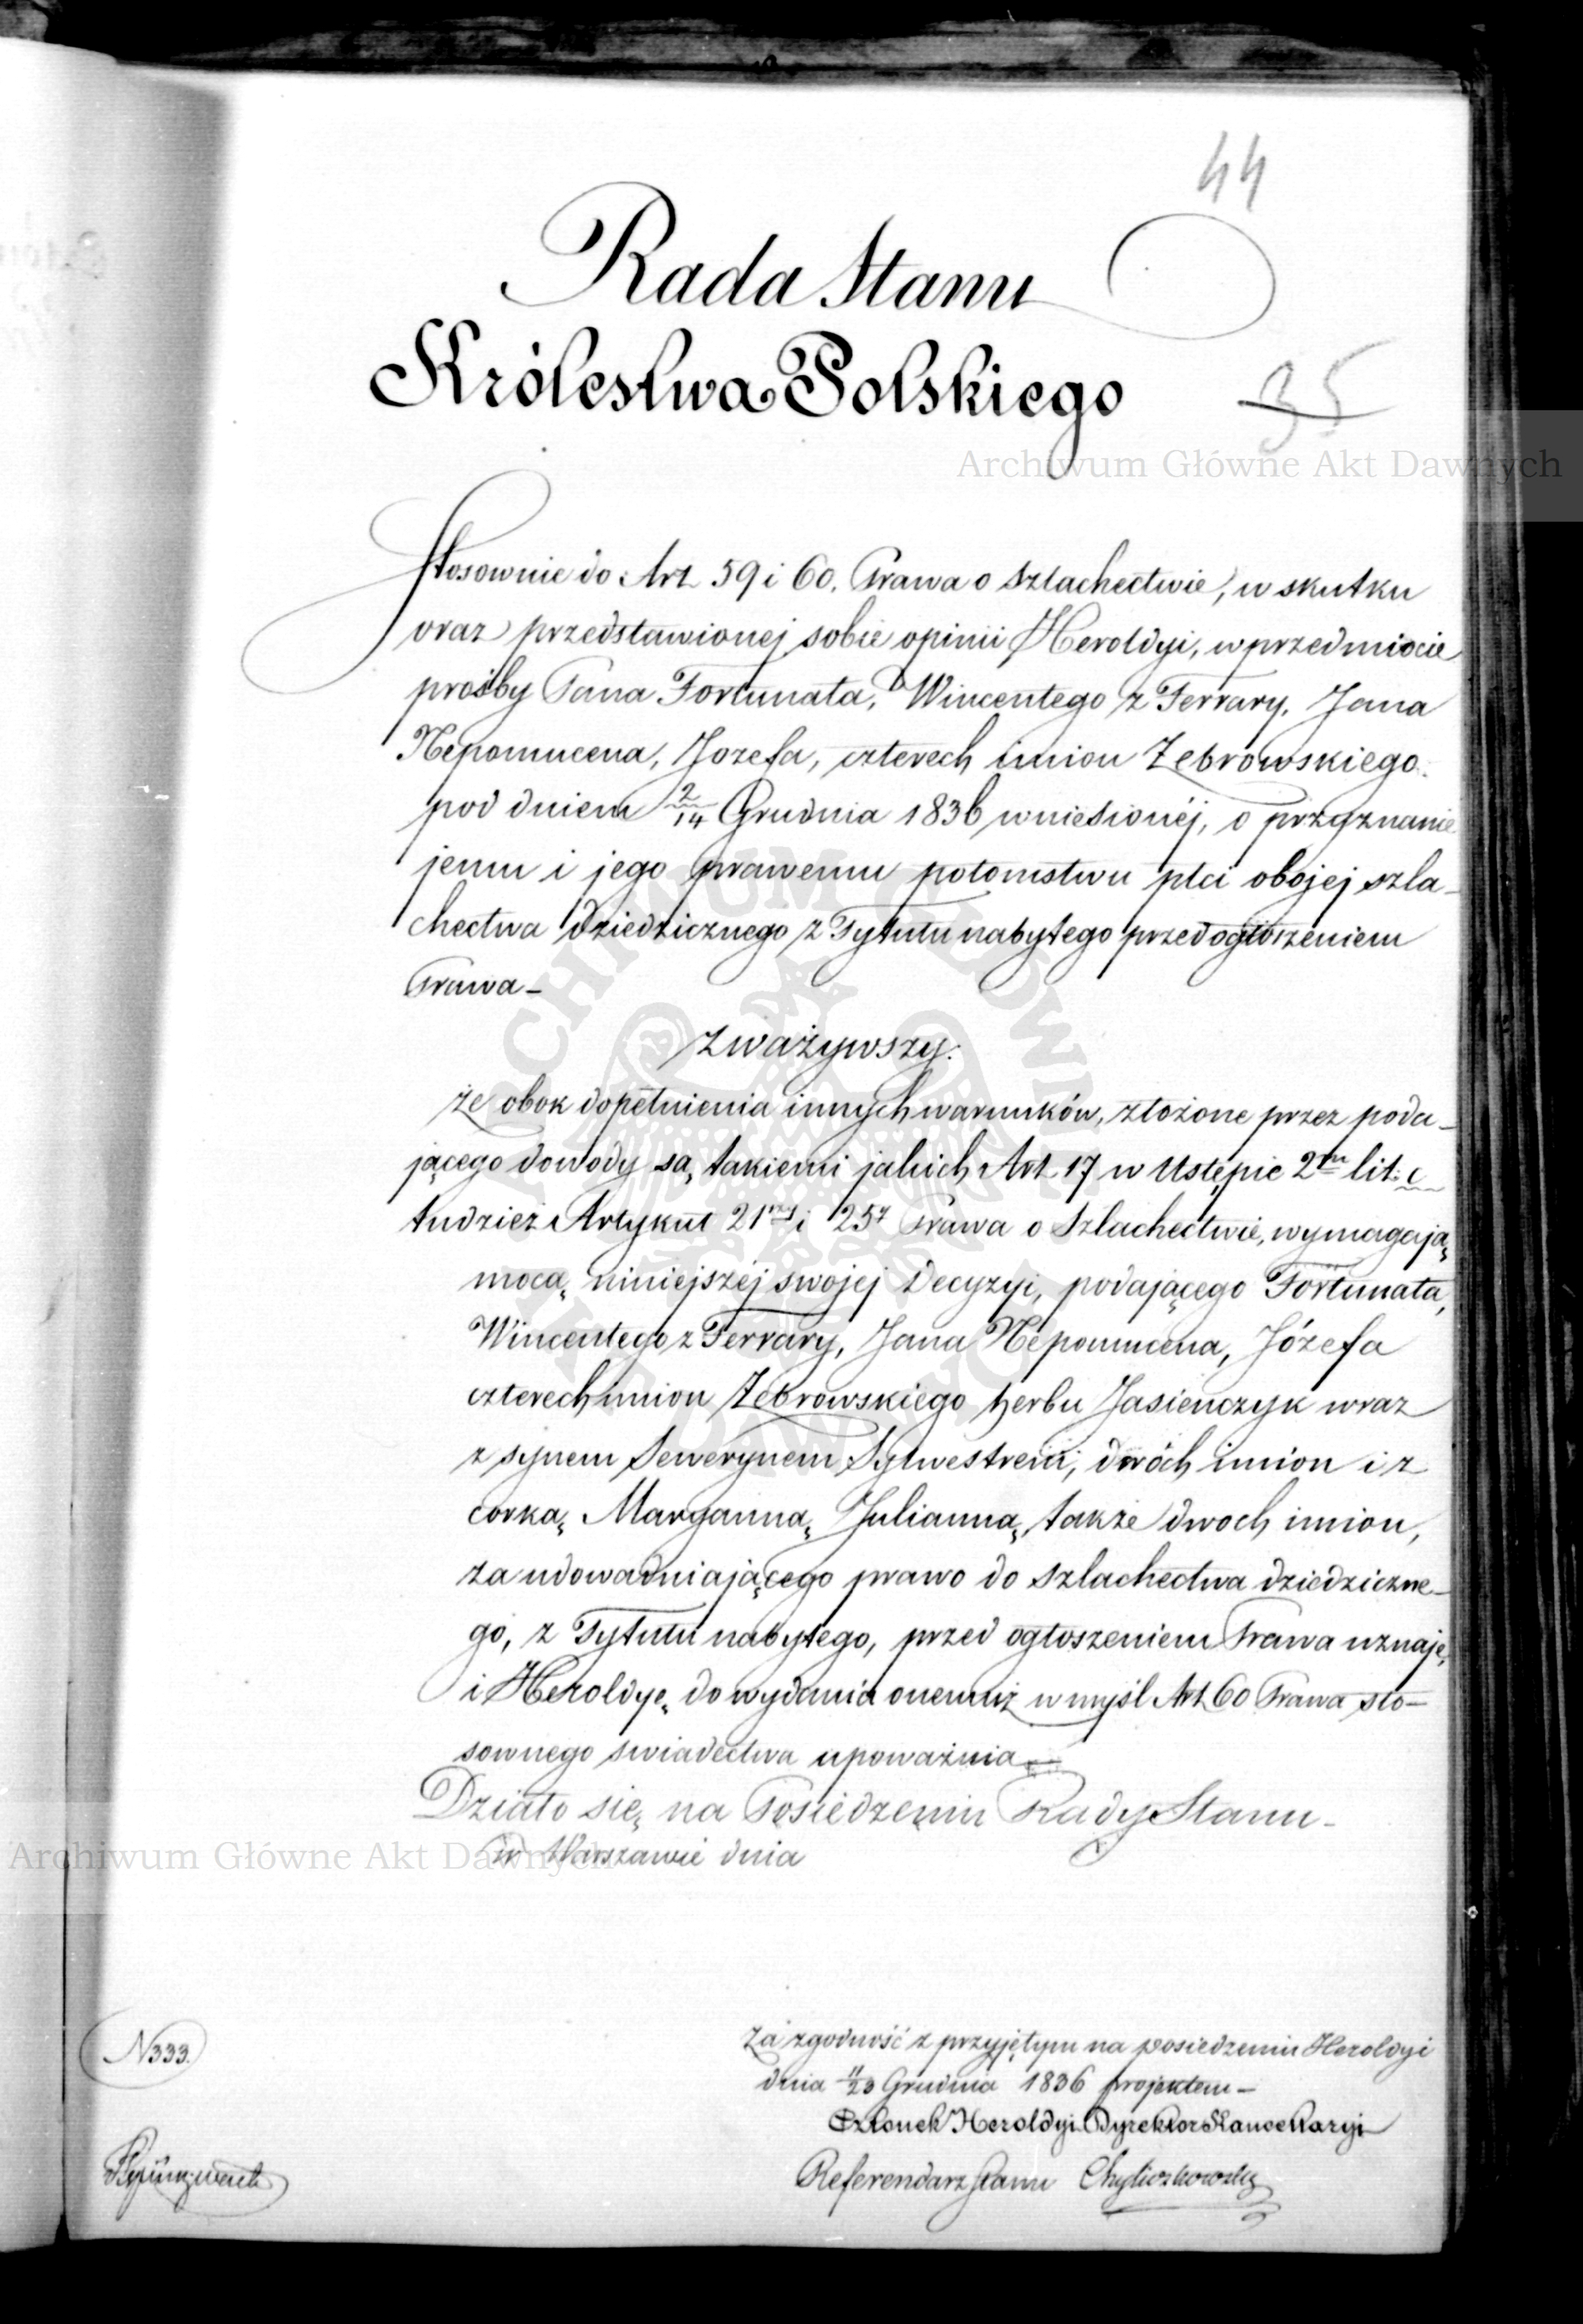 44
Rada Stanu
Królestwa Polskiego
35
Archiwum Główne Akt Dawnych
Stosownie do Art 59 i 60. Prawa o Szlachectwie, w skutku
oraz przedstawionej sobie opinii Heroldyi, w przedmiocie
prośby Pana Fortunata, Wincentego z Ferrary, Jana
Nepomucena, Jozefa, czterech imion Żebrowskiego.
pod dniem 2/14 Grudnia 1836 wniesionéj, o przyznanie
jemu i jego prawemu potomstwu płci obojej szla-
chectwa dziedzicznego z Tytułu nabytego przed ogłoszeniem
Prawa-
Zważywszy:
że obok dopełnienia innych warunków, złożone przez poda-
jącego dowody są takiemi jakich Art. 17 w Ustępie 2m lit: c
tudzież Artykuł 21 i 25 Prawa o Szlachectwie, wymagają,
mocą niniejszéj swojej Decyzyi, podającego Fortunata,
Wincentego z Ferrary, Jana Nepomucena, Józefa
czterech imion Żebrowskiego herbu Jasieńczyk wraz
z synem Sewerynem Sylwestrem, dwóch imion i z
corką Maryanną Julianną, także dwoch imion,
za udowadniającego prawo do szlachectwa dziedziczne-
go, z Tytułu nabytego, przed ogłoszeniem Prawa uznaje,
i Heroldyę do wydania onemuż w myśl Art 60 Prawa sto-
sownego swiadectwa upoważnia
Działo się na Posiedzeniu Rady Stanu-
w Warszawie dnia
Archiwum Główne Akt Dawnych
N333.
Za zgodność z przyjętym na posiedzeniu Heroldyi
dnia 11/23 Grudnia 1836 projektem-
Członek Heroldyi Dyrektor Kancellaryi
Referendarz Stanu Chyliczkowski